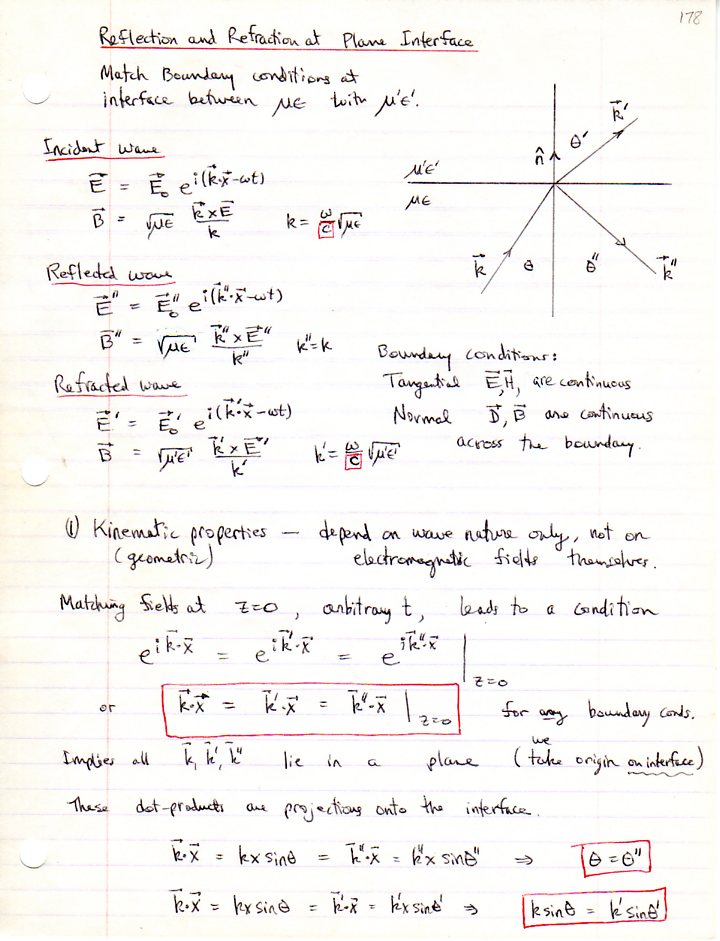 178
Reflection and Refraction at Plane Interface
Match Boundary conditions at
interface between με with μ'ε'.
Incident wave
E⃗ = E⃗₀ e^{i(k⃗·x⃗-ωt)}
B⃗ = √με (k⃗×E⃗)/k   k = (ω/c)√με
Reflected wave
E⃗'' = E⃗₀'' e^{i(k⃗''·x⃗-ωt)}
B⃗'' = √με (k⃗''×E⃗'')/k''   k''=k
Refracted wave
E⃗' = E⃗₀' e^{i(k⃗'·x⃗-ωt)}
B⃗ = √μ'ε' (k⃗'×E⃗')/k'   k' = (ω/c)√μ'ε'
k⃗'
θ'
n̂
μ'ε'
με
k⃗
θ
θ''
k⃗''
Boundary conditions:
Tangential E⃗, H⃗, are continuous
Normal D⃗, B⃗ are continuous
across the boundary.
(1) Kinematic properties — depend on wave nature only, not on
(geometric) electromagnetic fields themselves.
Matching fields at z=0, arbitrary t, leads to a condition
e^{ik⃗·x⃗} = e^{ik⃗'·x⃗} = e^{ik⃗''·x⃗} |_{z=0}
or k⃗·x⃗ = k⃗'·x⃗ = k⃗''·x⃗ |_{z=0} for any boundary conds.
Implies all k⃗, k⃗', k⃗'' lie in a plane (we take origin on interface)
These dot-products are projections onto the interface.
k⃗·x⃗ = kx sinθ = k⃗''·x⃗ = k''x sinθ'' ⇒ θ = θ''
k⃗·x⃗ = kx sinθ = k⃗'·x⃗ = k'x sinθ' ⇒ k sinθ = k' sinθ'